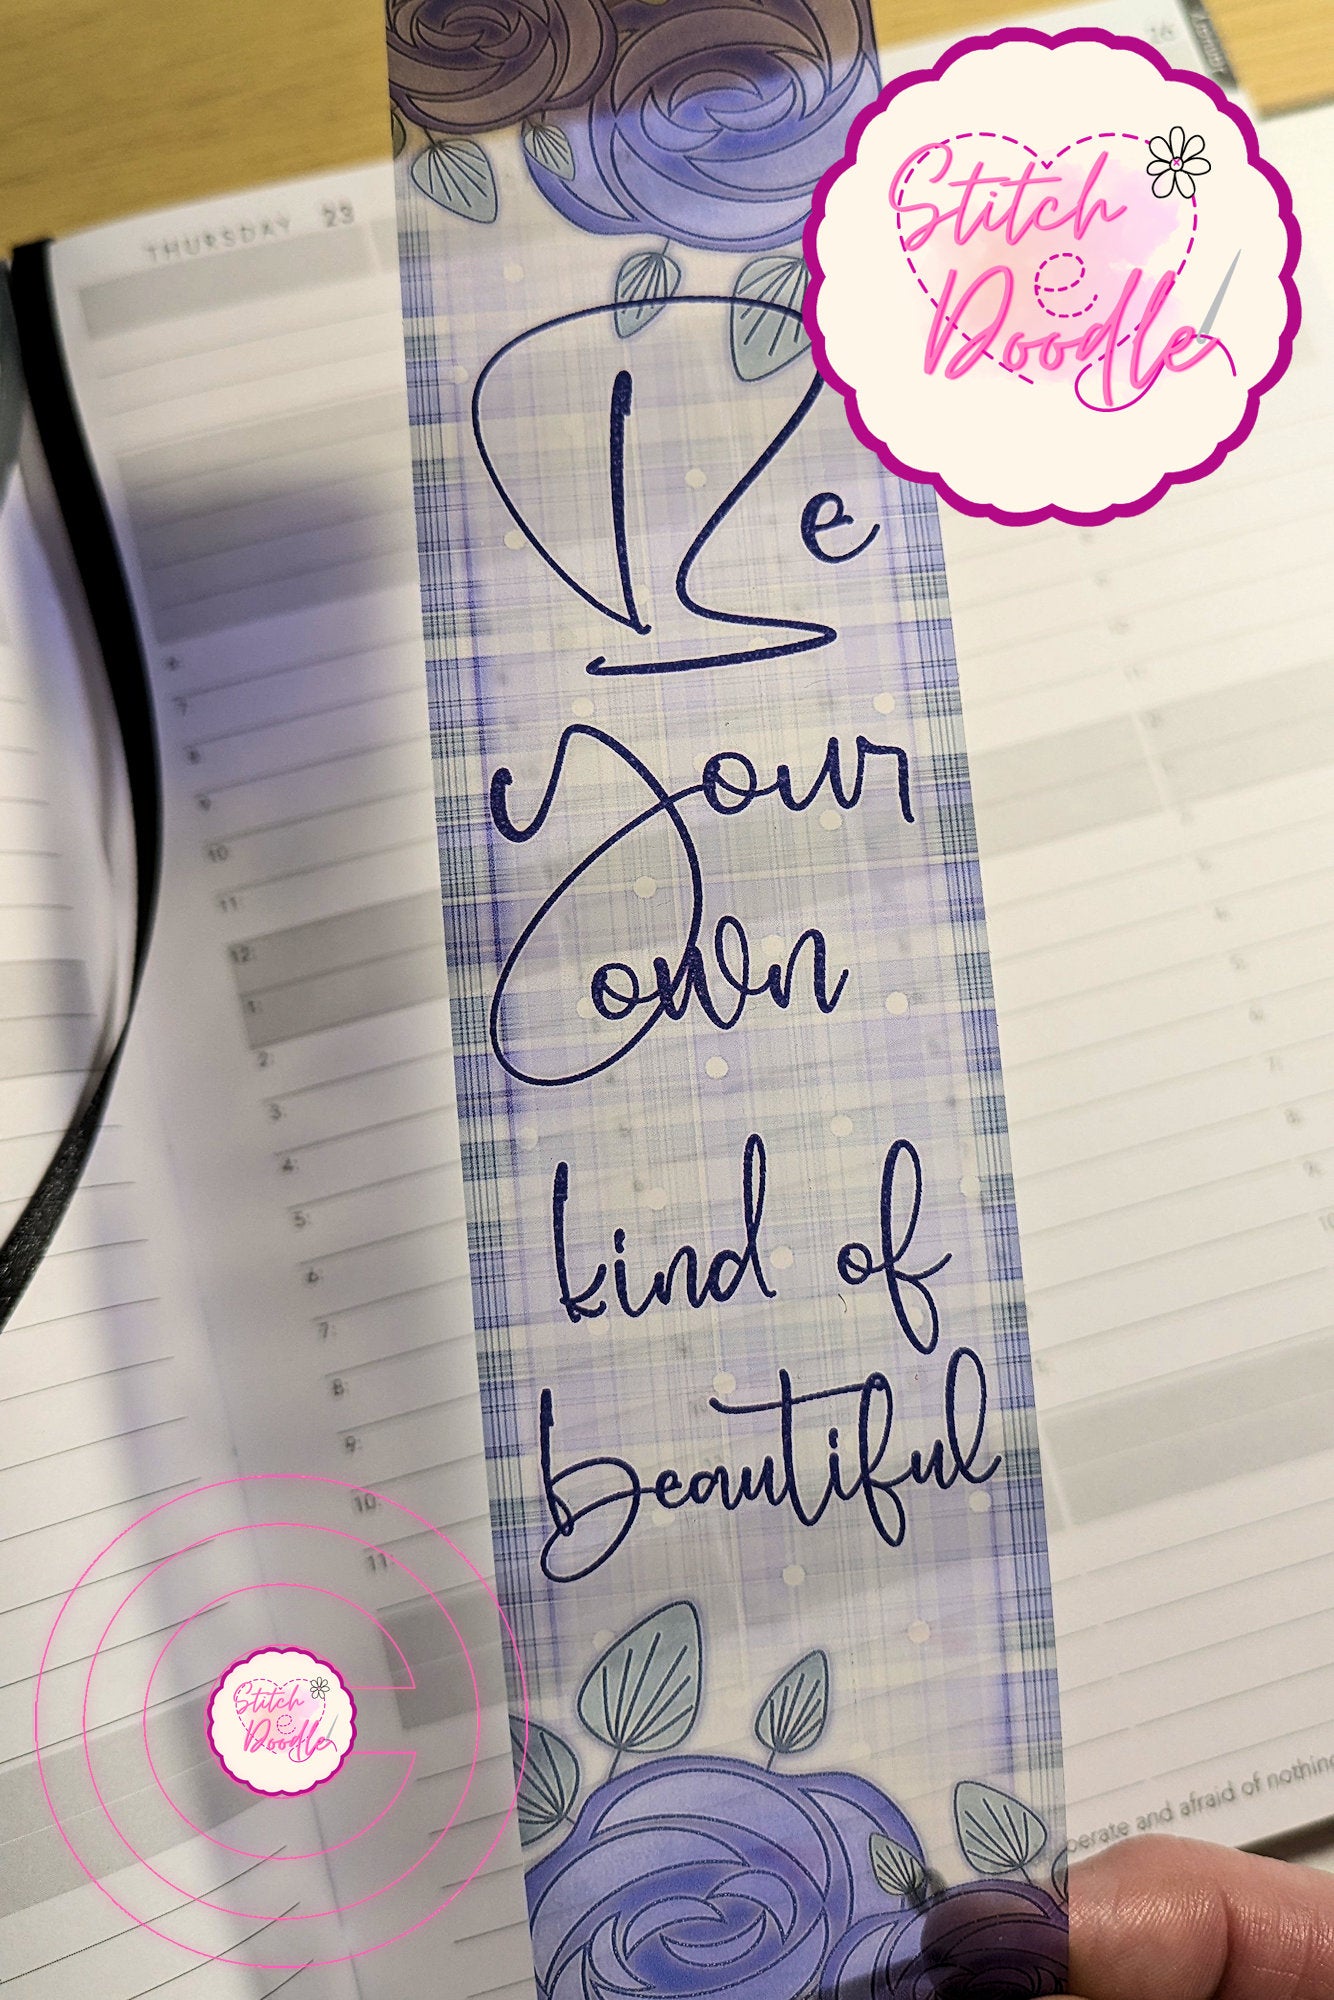 16
THURSDAY 23
Stitch
e
Doodle
Be
your
own
kind of
beautiful
7
8
9
10
11
12:
1:
2:
3:
4:
5:
6:
7:
8:
9:
10:
11:
Stitch
e
Doodle
berate and afraid of nothing